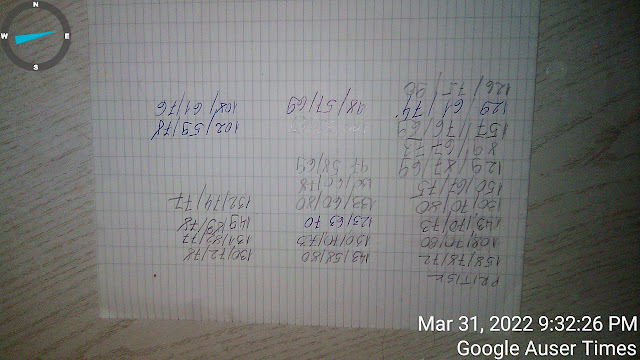 N
W E
S
PRITISK
158/78/72
108/70/80
143/70/73
130/70/80
150/67/75
129/87/69
89/67/73
157/76/69
129/61/74
126/75/90
143/58/80
150/70/73
123/63 70
133/60/80
130/60/78
97 58/69
98/57/69
130/72/78
131/82/77
149/83/78
132/74/77
102/59/78
108/61/76
Mar 31, 2022 9:32:26 PM
Google Auser Times